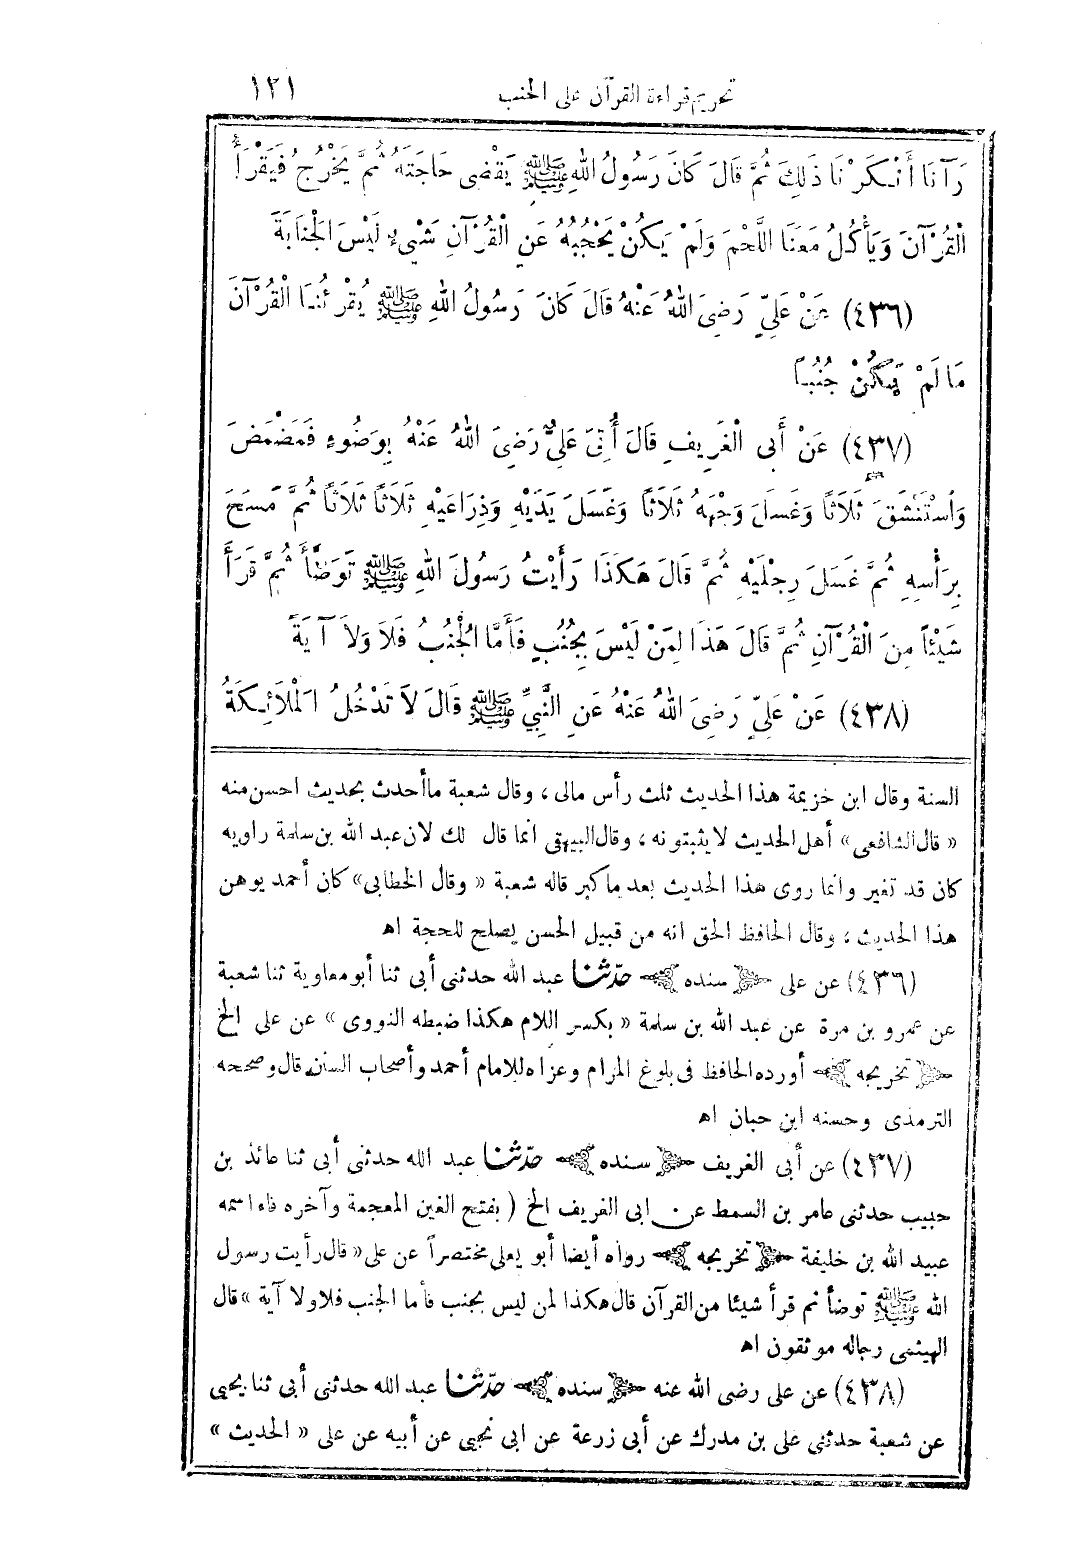 تحريم قراءة القرآن على الجنب ١٢١
رَآنَا أَنْكَرْنَا ذَلِكَ ثُمَّ قَالَ كَانَ رَسُولُ اللهِ ﷺ يَقْضِى حَاجَتَهُ ثُمَّ يَخْرُجُ فَيَقْرَأُ
الْقُرْآنَ وَيَأْكُلُ مَعَنَا اللَّحْمَ وَلَمْ يَكُنْ يَحْجُبُهُ عَنِ الْقُرْآنِ شَيْءٌ لَيْسَ الْجَنَابَةَ
(٤٣٦) عَنْ عَلِيٍّ رَضِىَ اللهُ عَنْهُ قَالَ كَانَ رَسُولُ اللهِ ﷺ يُقْرِئُنَا الْقُرْآنَ
مَا لَمْ يَكُنْ جُنُبًا
(٤٣٧) عَنْ أَبِى الْغَرِيفِ قَالَ أُتِىَ عَلِيٌّ رَضِىَ اللهُ عَنْهُ بِوَضُوءٍ فَمَضْمَضَ
وَاسْتَنْشَقَ ثَلَاثًا وَغَسَلَ وَجْهَهُ ثَلَاثًا وَغَسَلَ يَدَيْهِ وَذِرَاعَيْهِ ثَلَاثًا ثَلَاثًا ثُمَّ مَسَحَ
بِرَأْسِهِ ثُمَّ غَسَلَ رِجْلَيْهِ ثُمَّ قَالَ هَكَذَا رَأَيْتُ رَسُولَ اللهِ ﷺ تَوَضَّأَ ثُمَّ قَرَأَ
شَيْئًا مِنَ الْقُرْآنِ ثُمَّ قَالَ هَذَا لِمَنْ لَيْسَ بِجُنُبٍ فَأَمَّا الْجُنُبُ فَلَا وَلَا آيَةً
(٤٣٨) عَنْ عَلِيٍّ رَضِىَ اللهُ عَنْهُ عَنِ النَّبِيِّ ﷺ قَالَ لَا تَدْخُلُ الْمَلَائِكَةُ
السنة وقال ابن خزيمة هذا الحديث ثلث رأس مالى ، وقال شعبة ماأحدث بحديث احسن منه
« قال الشافعى » أهل الحديث لا يثبتونه ، وقال البيهقى انما قال ذلك لان عبد الله بن سلمة راويه
كان قد تغير وانما روى هذا الحديث بعد ما كبر قاله شعبة « وقال الخطابى » كان أحمد يوهن
هذا الحديث ، وقال الحافظ الحق انه من قبيل الحسن يصلح للحجة اه
(٤٣٦) عن على ﴿ سنده ﴾ حدّثنا عبد الله حدثنى أبى ثنا أبو معاوية ثنا شعبة
عن عمرو بن مرة عن عبد الله بن سلمة « بكسر اللام هكذا ضبطه النووى » عن على الخ
﴿ تخريجه ﴾ أورده الحافظ فى بلوغ المرام وعزاه للامام أحمد وأصحاب السنن قال وصححه
الترمذى وحسنه ابن حبان اه
(٤٣٧) عن أبى الغريف ﴿ سنده ﴾ حدّثنا عبد الله حدثنى أبى ثنا عائذ بن
حبيب حدثنى عامر بن السمط عن ابى الغريف الخ ( بفتح الغين المعجمة وآخره فاء اسمه
عبيد الله بن خليفة ﴿ تخريجه ﴾ رواه أيضا أبو يعلى مختصراً عن على « قال رأيت رسول
الله ﷺ توضأ ثم قرأ شيئا من القرآن قال هكذا لمن ليس بجنب فأما الجنب فلا ولا آية » قال
الهيثمى رجاله موثقون اه
(٤٣٨) عن على رضى الله عنه ﴿ سنده ﴾ حدّثنا عبد الله حدثنى أبى ثنا يحيى
عن شعبة حدثنى على بن مدرك عن أبى زرعة عن ابى نجى عن أبيه عن على « الحديث »